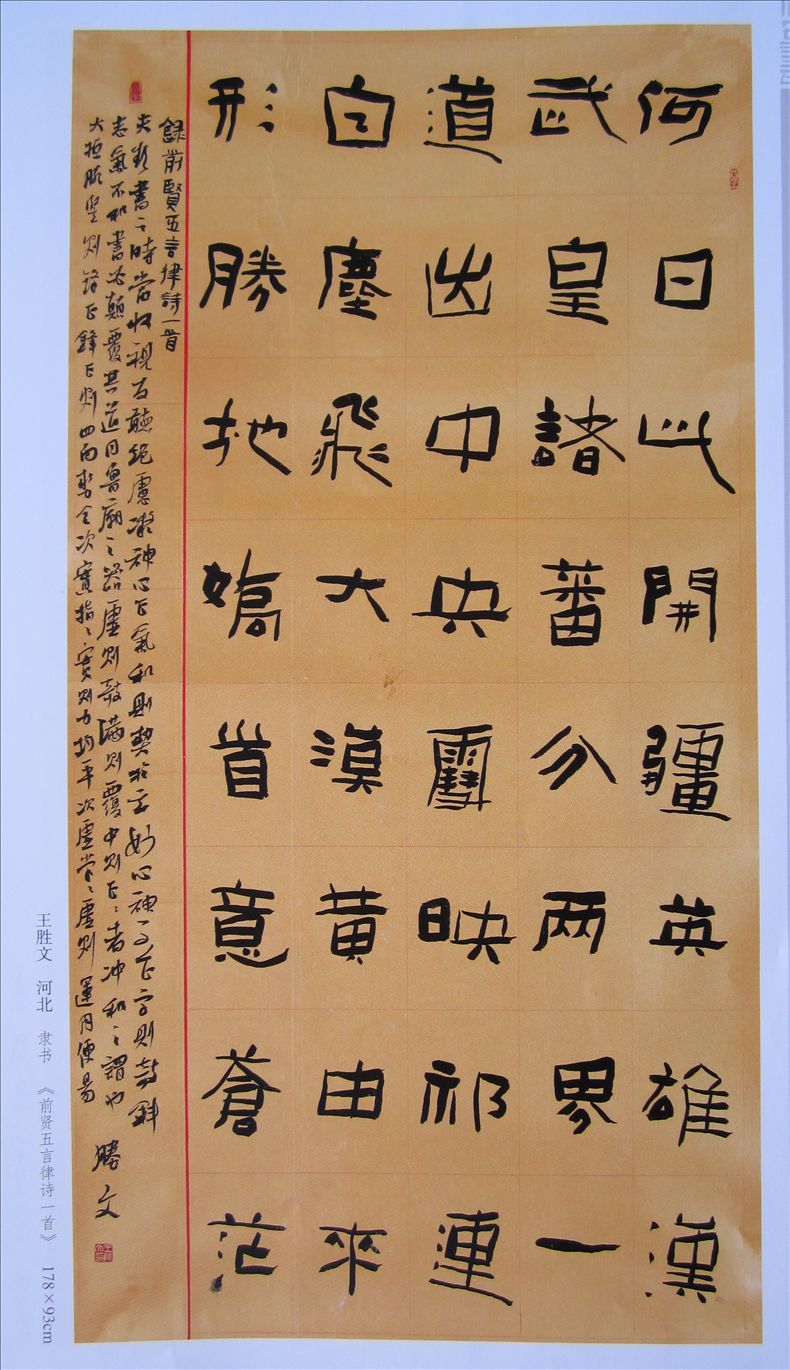 何日此開疆英雄漢
武皇諸蕃分两界一
道出中央雪映祁連
白塵飛大漠黄由來
形勝地嬌首意蒼茫
録前賢五言律詩一首
夫欲書之時當收視反聽絕慮凝神心正氣和則契於玄妙心神不正字則欹斜
志氣不和書必顛覆其道同魯廟之器虛則欹滿則覆中則正正者沖和之謂也
大抵腕豎則鋒正鋒正則四面勢全次實指指實則力均平次虛掌掌虛則運用便易 勝文
王胜文 河北 隶书 《前贤五言律诗一首》 178×93cm